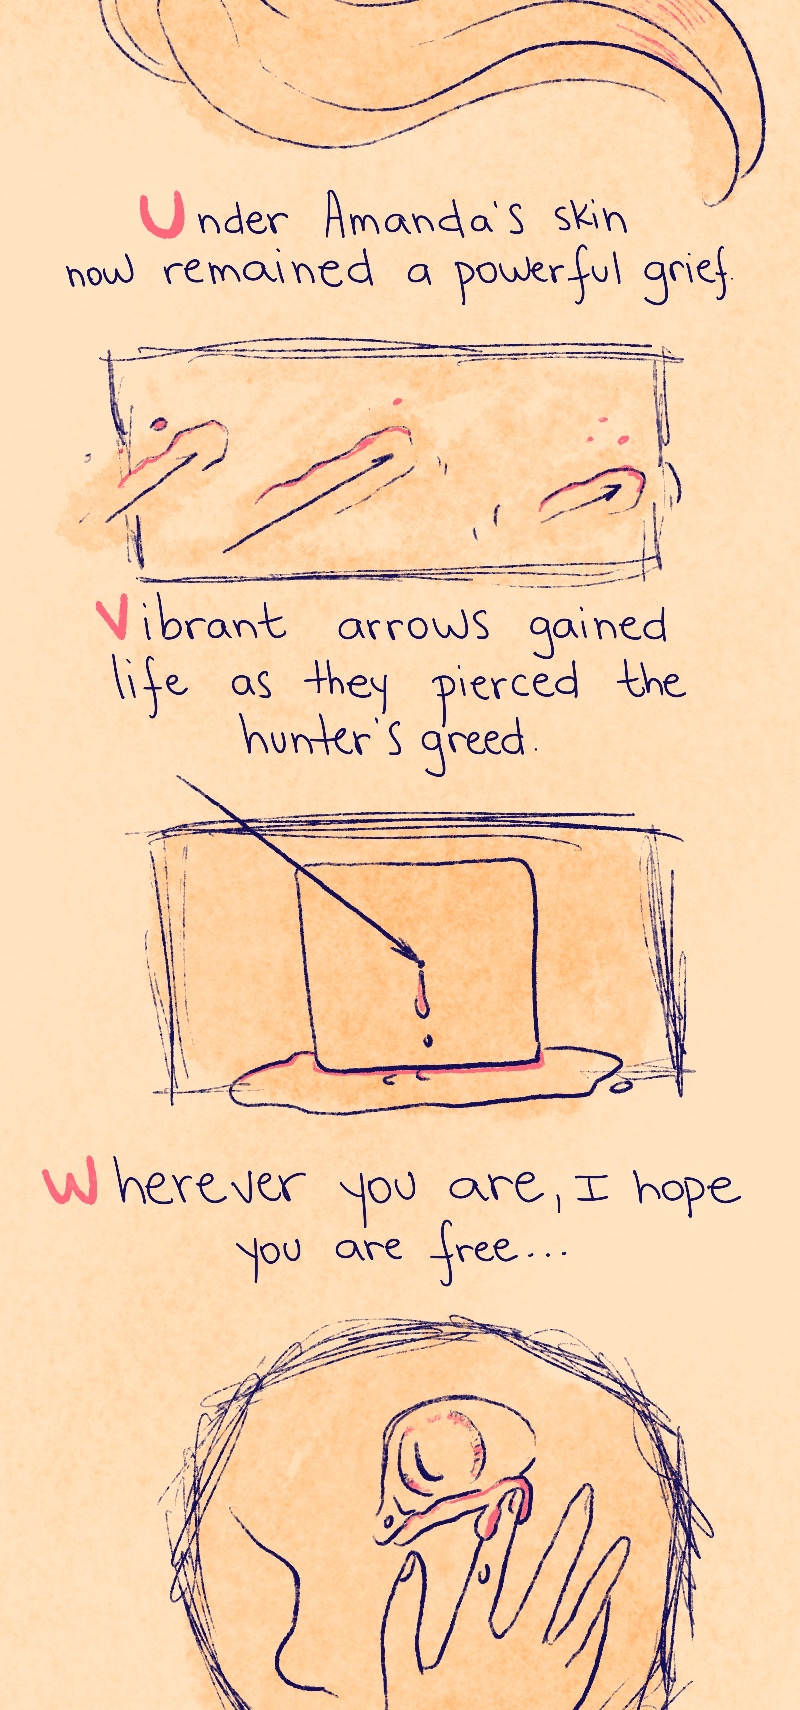 Under Amanda's skin
now remained a powerful grief.
Vibrant arrows gained
life as they pierced the
hunter's greed.
Wherever you are, I hope
you are free...